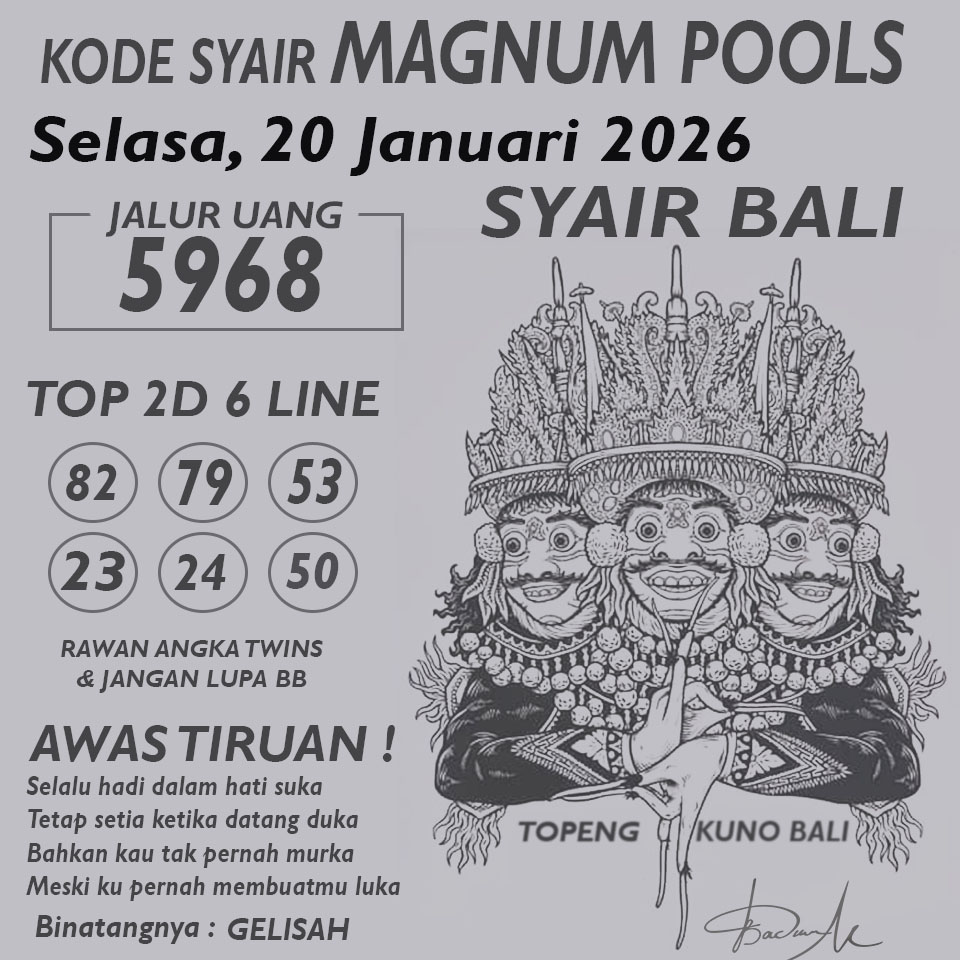 KODE SYAIR MAGNUM POOLS
Selasa, 20 Januari 2026
SYAIR BALI
JALUR UANG
5968
TOP 2D 6 LINE
82 79 53
23 24 50
RAWAN ANGKA TWINS
& JANGAN LUPA BB
AWAS TIRUAN !
Selalu hadi dalam hati suka
Tetap setia ketika datang duka
Bahkan kau tak pernah murka
Meski ku pernah membuatmu luka
Binatangnya : GELISAH
TOPENG KUNO BALI